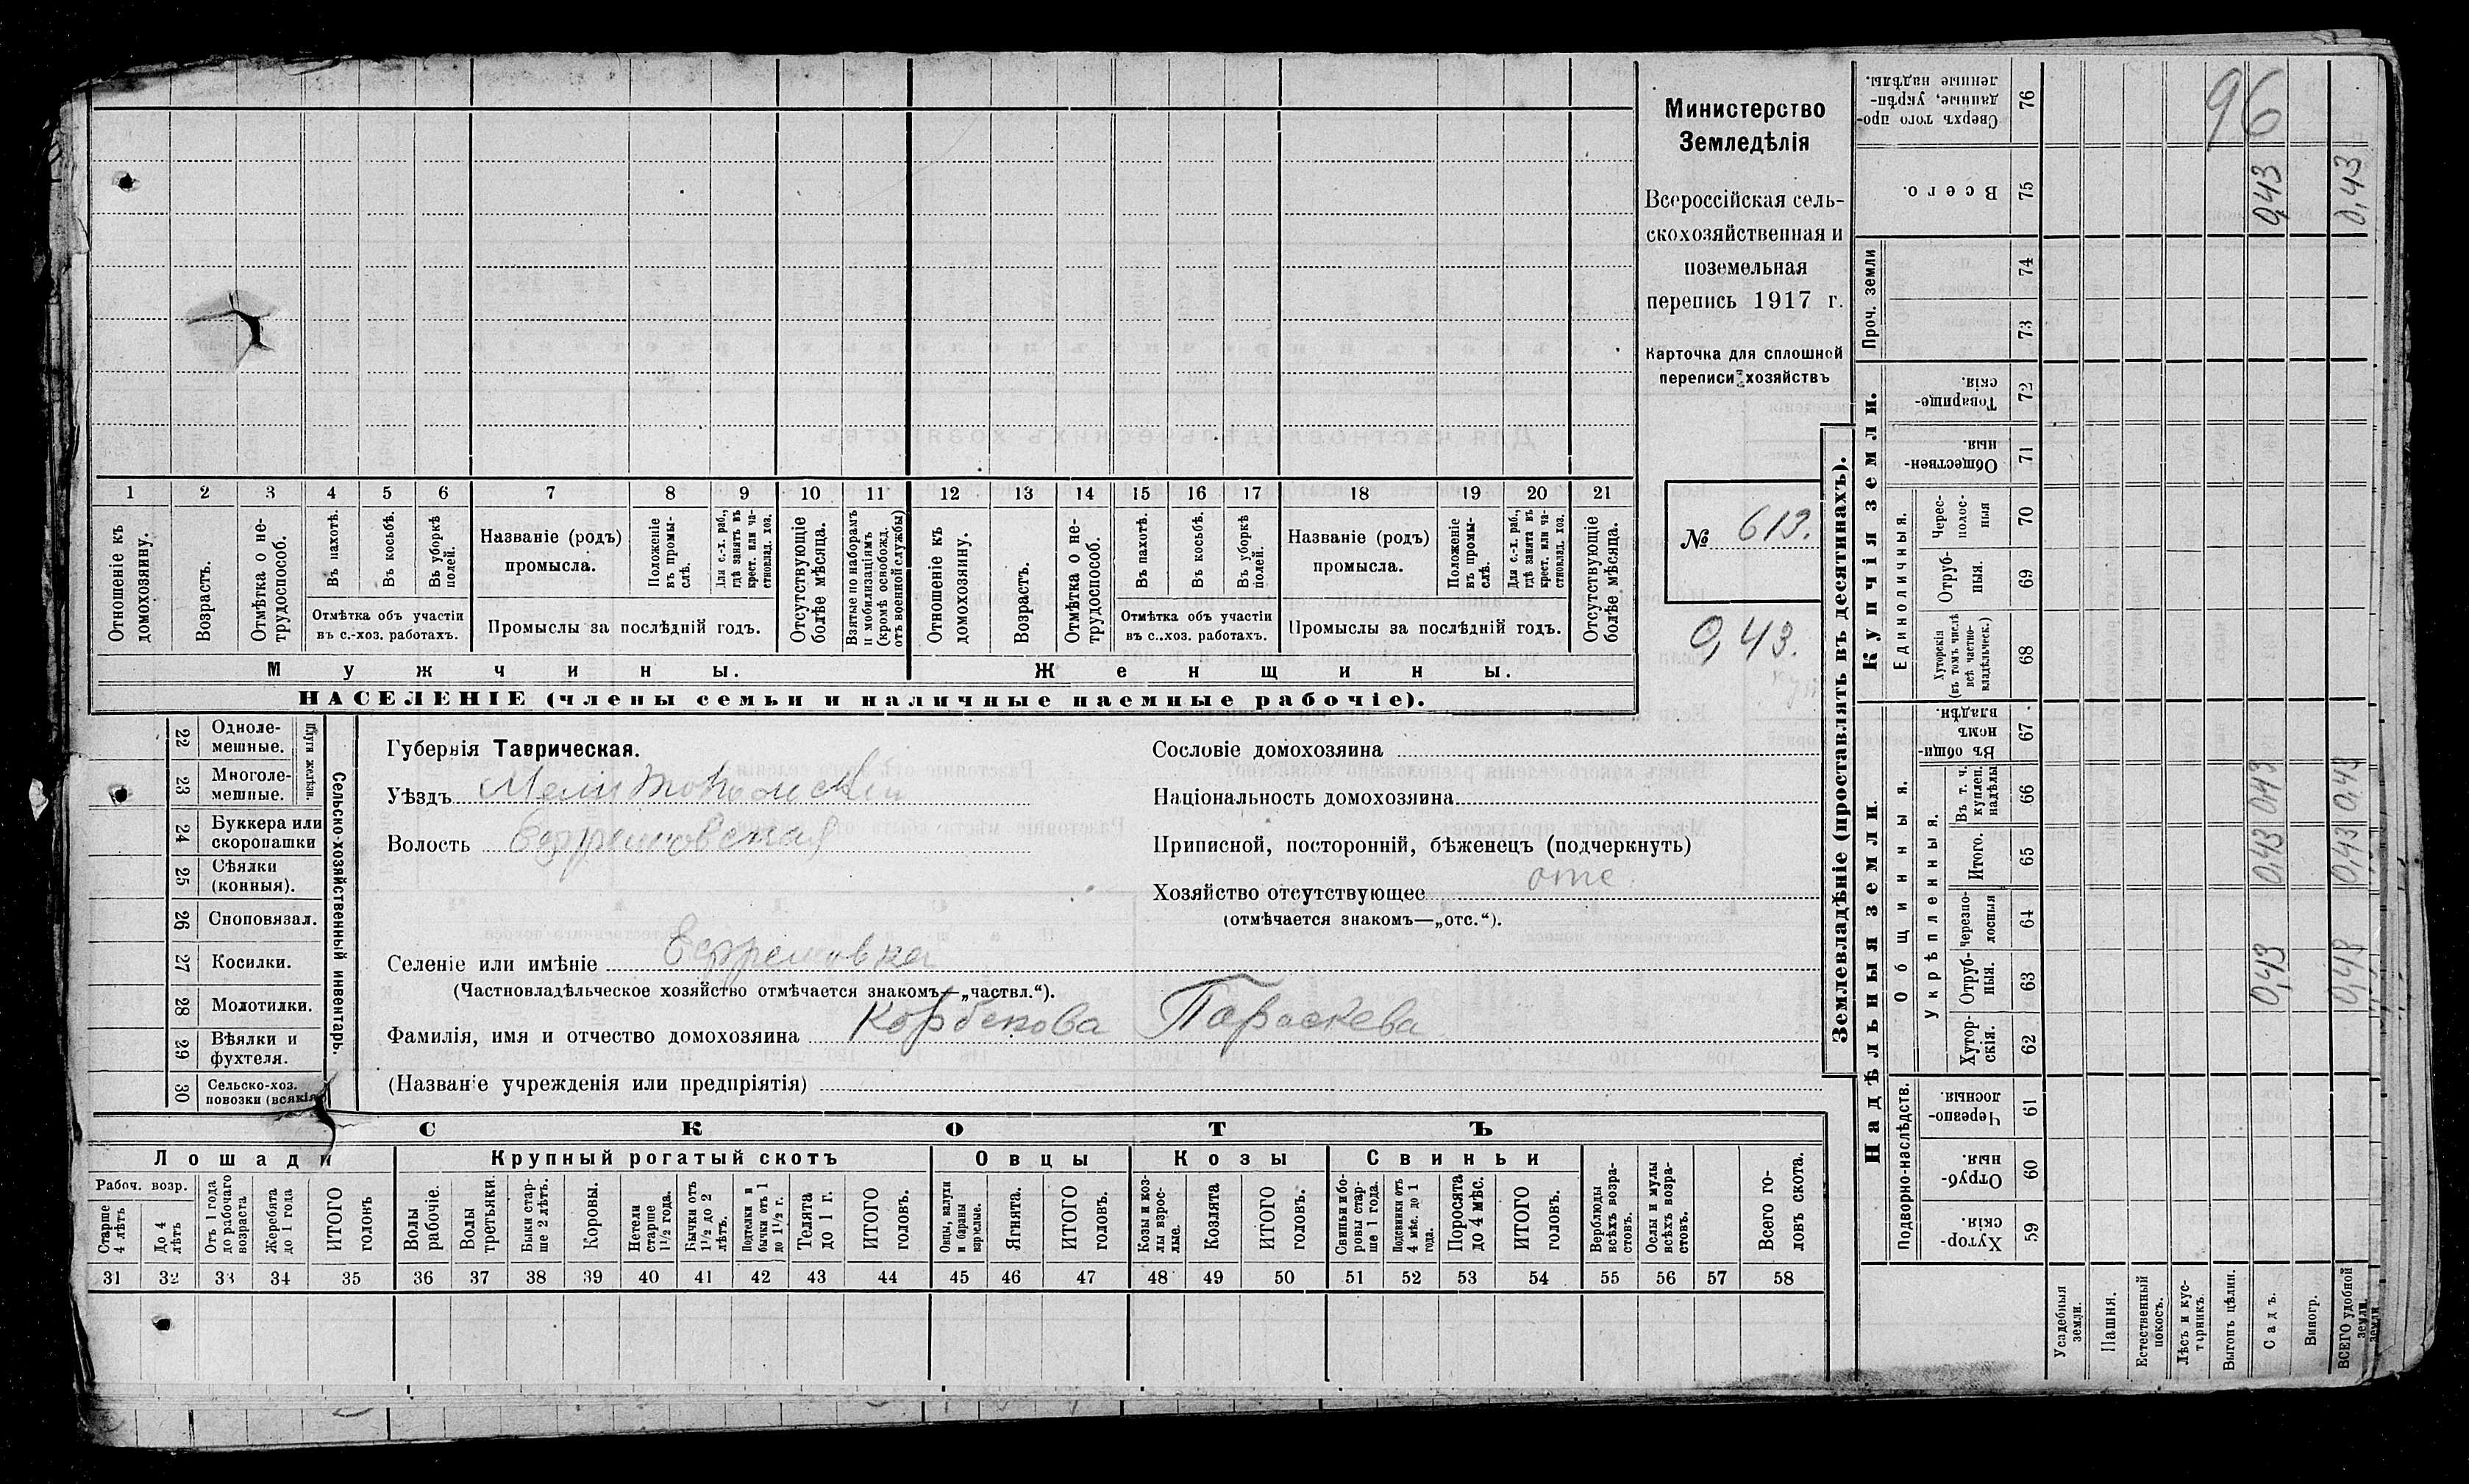 Министерство
Земледѣлія
Всероссійская сель-
скохозяйственная и
поземельная
перепись 1917 г.
Карточка для сплошной
переписи хозяйствъ
№ 613.
0,43.
96
1 2 3 4 5 6 7 8 9 10 11 12 13 14 15 16 17 18 19 20 21
Отношеніе къ домохозяину.
Возрастъ.
Отмѣтка о не-трудоспособ.
Въ пахотѣ.
Въ косьбѣ.
Въ уборкѣ полей.
Отмѣтка объ участіи
въ с.-хоз. работахъ.
Названіе (родъ)
промысла.
Положеніе въ промы-слѣ.
Для с.-х. раб., гдѣ занятъ въ крест. или ча-стновлад. хоз.
Промыслы за послѣдній годъ.
Отсутствующіе болѣе мѣсяца.
Взятые по наборамъ и мобилизаціямъ (кромѣ освобожд. отъ военной службы)
Отношеніе къ домохозяину.
Возрастъ.
Отмѣтка о не-трудоспособ.
Въ пахотѣ.
Въ косьбѣ.
Въ уборкѣ полей.
Отмѣтка объ участіи
въ с.-хоз. работахъ.
Названіе (родъ)
промысла.
Положеніе въ промы-слѣ.
Для с.-х. раб., гдѣ занята въ крест. или ча-стновлад. хоз.
Промыслы за послѣдній годъ.
Отсутствующіе болѣе мѣсяца.
Мужчины.
Женщины.
НАСЕЛЕНІЕ (члены семьи и наличные наемные рабочіе).
22 Одноле-мешные.
23 Многоле-мешные.
Плуги желѣзн.
24 Буккера или скоропашки
25 Сѣялки (конныя).
26 Споповязал.
27 Косилки.
28 Молотилки.
29 Вѣялки и фухтеля.
30 Сельско-хоз. повозки (всякія)
Сельско-хозяйственный инвентарь.
Губернія Таврическая.
Уѣздъ Мелитопольскій
Волость Ефремовская
Селеніе или имѣніе Ефремовка
(Частновладѣльческое хозяйство отмѣчается знакомъ—„частвл.“).
Фамилія, имя и отчество домохозяина Корбекова Параскева
(Названіе учрежденія или предпріятія)
Сословіе домохозяина
Національность домохозяина
Приписной, посторонній, бѣженецъ (подчеркнуть)
Хозяйство отсутствующее отс
(отмѣчается знакомъ—„отс.“).
СКОТЪ
Лошади
Крупный рогатый скотъ
Овцы
Козы
Свиньи
Рабоч. возр.
Старше 4 лѣтъ
До 4 лѣтъ
Отъ 1 года до рабочаго возраста
Жеребята до 1 года
ИТОГО головъ
Волы рабочіе.
Волы третьяки.
Быки стар-ше 2 лѣтъ.
Коровы.
Нетели старше 1½ года.
Бычки отъ 1½ до 2 лѣтъ.
Подтелки и бычки отъ 1 до 1½ г.
Телята до 1 г.
ИТОГО головъ.
Овцы, валухи и бараны взрослые.
Ягнята.
ИТОГО головъ.
Козы и коз-лы взрос-лые.
Козлята
ИТОГО головъ.
Свиньи и бо-ровы стар-ше 1 года.
Подсвинки отъ 4 мѣс. до 1 года.
Поросята до 4 мѣс.
ИТОГО головъ.
Верблюды всѣхъ возра-стовъ.
Ослы и мулы всѣхъ возра-стовъ.
Всего го-ловъ скота.
31 32 33 34 35 36 37 38 39 40 41 42 43 44 45 46 47 48 49 50 51 52 53 54 55 56 57 58
Землевладѣніе (проставлять въ десятинахъ).
Надѣльныя земли.
Купчія земли.
Проч. земли
Подворно-наслѣдств.
Общинныя.
Укрѣпленныя.
Единоличныя.
59 Хутор-скія.
60 Отруб-ныя.
61 Черезпо-лосныя.
62 Хутор-скія.
63 Отруб-ныя.
64 Черезпо-лосныя
65 Итого.
66 Въ т. ч. куплен. надѣлы
67 Въ общин-номъ владѣн.
68 Хуторскія (въ томъ числѣ всѣ частно-владѣльческ.)
69 Отруб-ныя.
70 Черес-полос-ныя
71 Обществен-ныя
72 Товарище-скія.
73
74
75 Всего.
76 Сверхъ того про-данные, укрѣп-ленные надѣлы.
Усадебныя земли.
Пашня.
Естественный покосъ.
Лѣсъ и кус-тарникъ.
Выгонъ цѣлин.
Садъ. 0,43 0,43 0,43 0,43
Виногр.
ВСЕГО удобной земли. 0,43 0,43 0,43 0,43